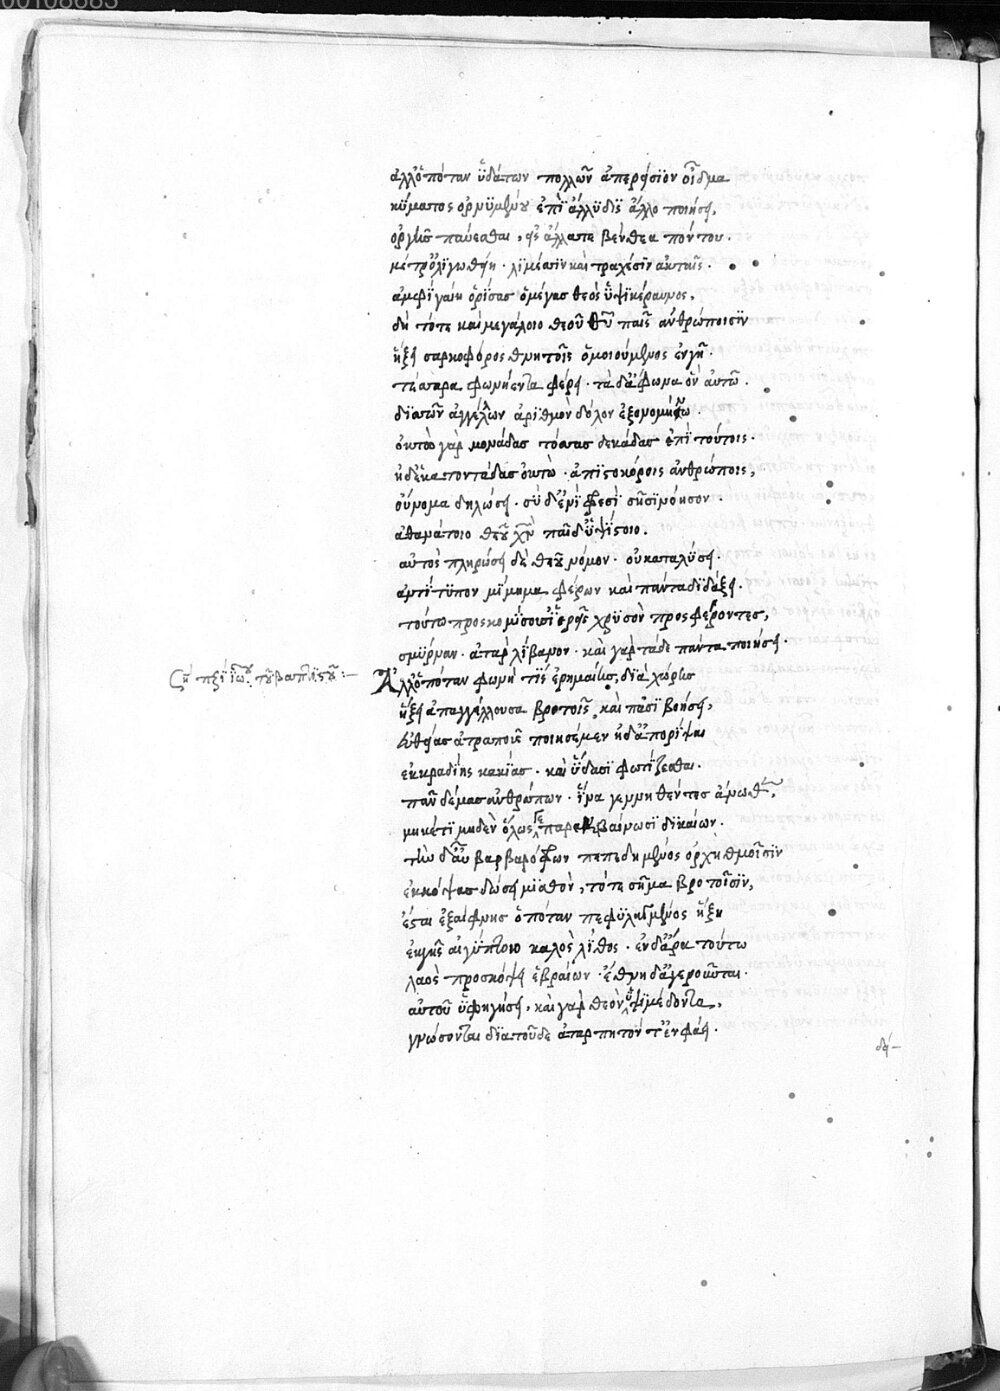 00108683
ἀλλ' ὁπόταν ὑδάτων πολλῶν ἀπερείσιον οἶδμα
κύματος ὀρνυμένου ἐπὶ ἀλλυδὶς ἄλλο ποιήσει,
ὀργῆς παύεσθαι, εἰς ἄλλα τε βένθεα πόντου.
μετρολιγωθείη. λιμέσιν καὶ τραχέσιν ἀκταῖς.
ἀμφὶ γαίη ὁρίσας ὁ μέγας θεὸς ὑψικέραυνος,
δὴ τότε καὶ μεγάλοιο θεοῦ παῖς ἀνθρώποισϊν
ἥξει σαρκοφόρος θνητοῖς ὁμοιούμενος ἐν γῇ.
τέσσαρα φωνήεντα φέρει. τὰ δ' ἄφωνα ἐν αὐτῷ.
δισσῶν ἀγγέλων ἀριθμὸν δ' ὅλον ἐξονομήνω.
ὀκτὼ γὰρ μονάδας τόσσας δεκάδας ἐπὶ τούτοις.
ἠδ' ἑκατοντάδας ὀκτὼ. ἀπιστοκόροις ἀνθρώποις,
οὔνομα δηλώσει. σὺ δ' ἐνὶ φρεσὶ σῇσι νόησον.
ἀθανάτοιο θεοῦ χν παῖδ' ὑψίστοιο.
αὐτὸς πληρώσει δὲ θεοῦ νόμον. οὐ καταλύσει.
ἀντίτυπον μίμημα φέρων καὶ πάντα διδάξει.
τούτω προσκομίσουσι ἱερεῖς χρϋσὸν προσφέροντες,
σμύρναν. ἀτὰρ λίβανον. καὶ γὰρ τάδε πάντα ποιήσει.
Ἀλλ' ὁπόταν φωνὴ τίς ἐρημαίης διὰ χώρης
ἥξει ἀπαγγέλλουσα βροτοῖς, καὶ πᾶσϊ βοήσει,
εὐθείας ἀτραποὺς ποιησέμεν ἠδ' ἀπορίψαι
ἐκ κραδίης κακίας. καὶ ὕδασϊ φωτίζεσθαι.
πᾶν δέμας ἀνθρώπων. ἵνα γεννηθέντες ἄνωθεν,
μηκέτϊ μηδὲν ὅλως γε παρεκβαίνωσϊ δϊκαίων.
τὴν δ' αὖ βαρβαρόφρων πεπεδημένος ὀρχηθμοῖσϊν
ἐκκόψας δώσει μϊσθὸν, τότε σῆμα βροτοῖσϊν,
ἔσται ἐξαίφνης ὁπόταν πεφϋλαγμένος ἥξη
ἐκ γῆς αἰγύπτοιο καλὸς λίθος. ἐν δ' ἄρα τούτω
λαὸς προσκόψει ἑβραίων. ἔθνη δ' ἀγεροῦνται.
αὐτοῦ ὑφηγήσει. καὶ γὰρ θεὸν ὑψιμέδοντα,
γνώσονται διὰ τοῦδε ἀταρπητόν τ' ἐν φάει.